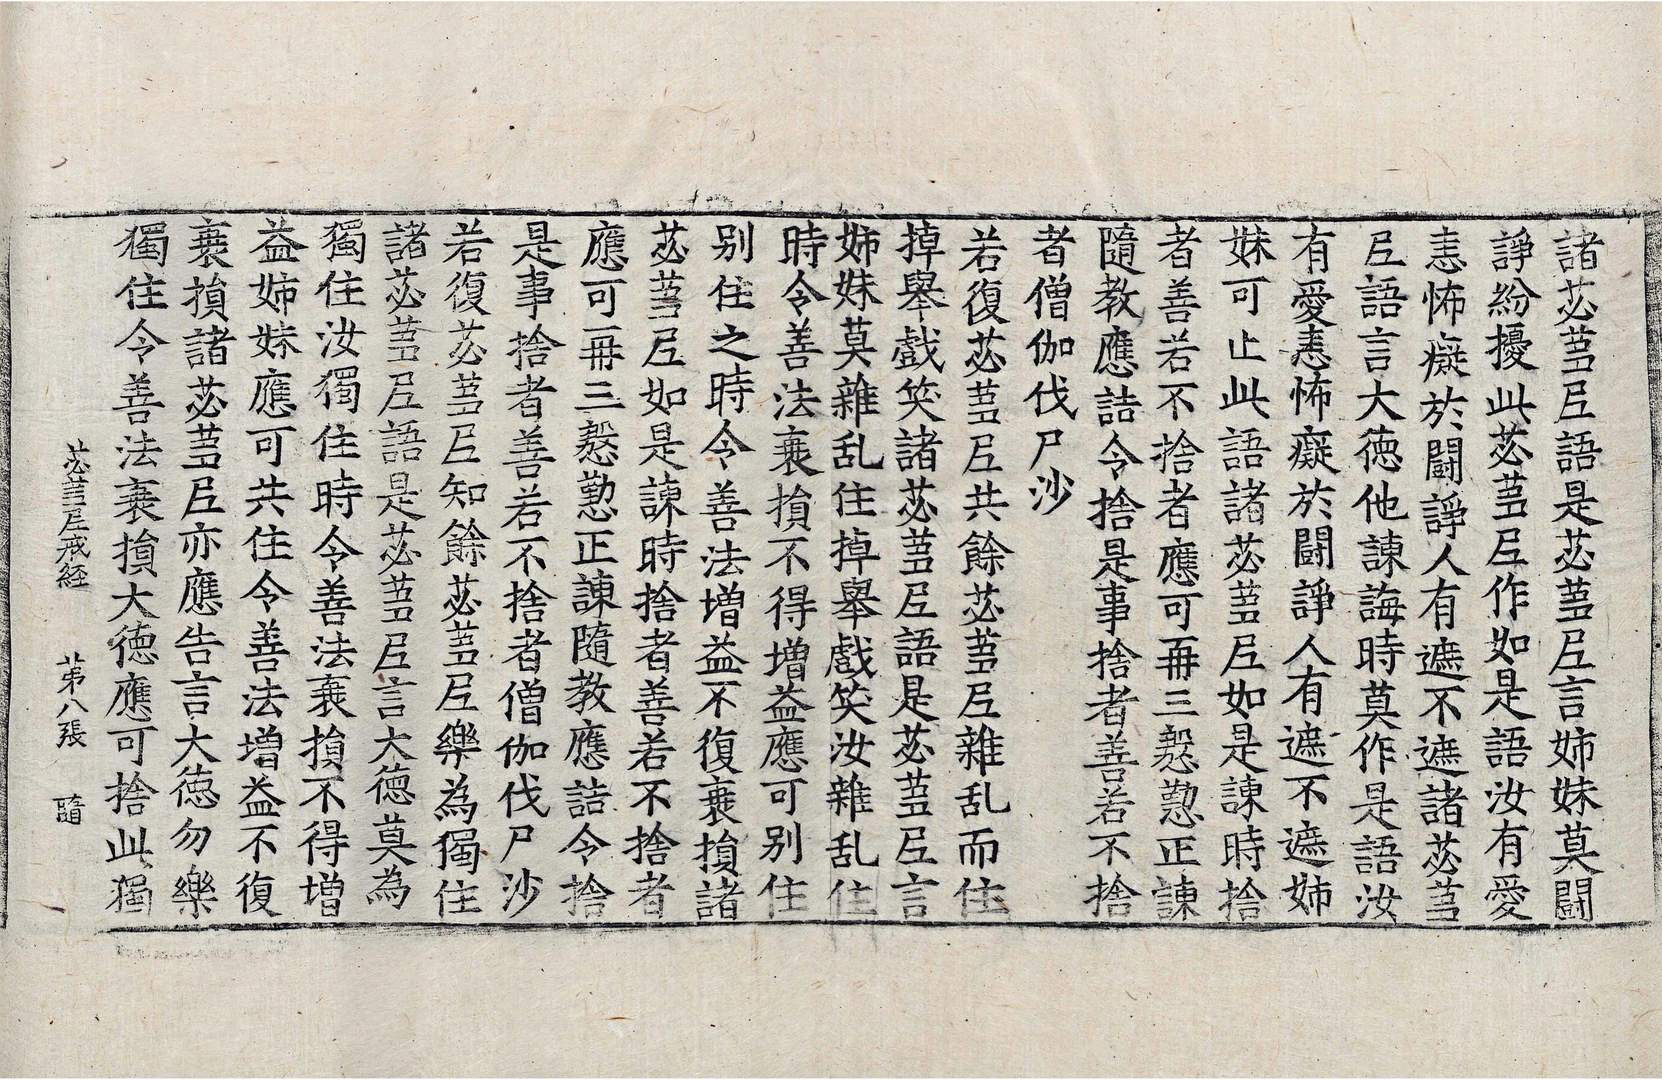 諸苾蒭尼語是苾蒭尼言姉妹莫鬪
諍紛擾此苾蒭尼作如是語汝有愛
恚怖癡於鬪諍人有遮不遮諸苾蒭
尼語言大德他諫誨時莫作是語汝
有愛恚怖癡於鬪諍人有遮不遮姉
妹可止此語諸苾蒭尼如是諫時捨
者善若不捨者應可再三慇懃正諫
隨教應詰令捨是事捨者善若不捨
者僧伽伐尸沙
若復苾蒭尼共餘苾蒭尼雜乱而住
掉舉戲笑諸苾蒭尼語是苾蒭尼言
姉妹莫雜乱住掉舉戲笑汝雜乱住
時令善法衰損不得增益應可别住
别住之時令善法增益不復衰損諸
苾蒭尼如是諫時捨者善若不捨者
應可再三慇懃正諫隨教應詰令捨
是事捨者善若不捨者僧伽伐尸沙
若復苾蒭尼知餘苾蒭尼樂為獨住
諸苾蒭尼語是苾蒭尼言大德莫為
獨住汝獨住時令善法衰損不得增
益姉妹應可共住令善法增益不復
衰損諸苾蒭尼亦應告言大德勿樂
獨住令善法衰損大德應可捨此獨
苾蒭尼戒経　第八張　隨